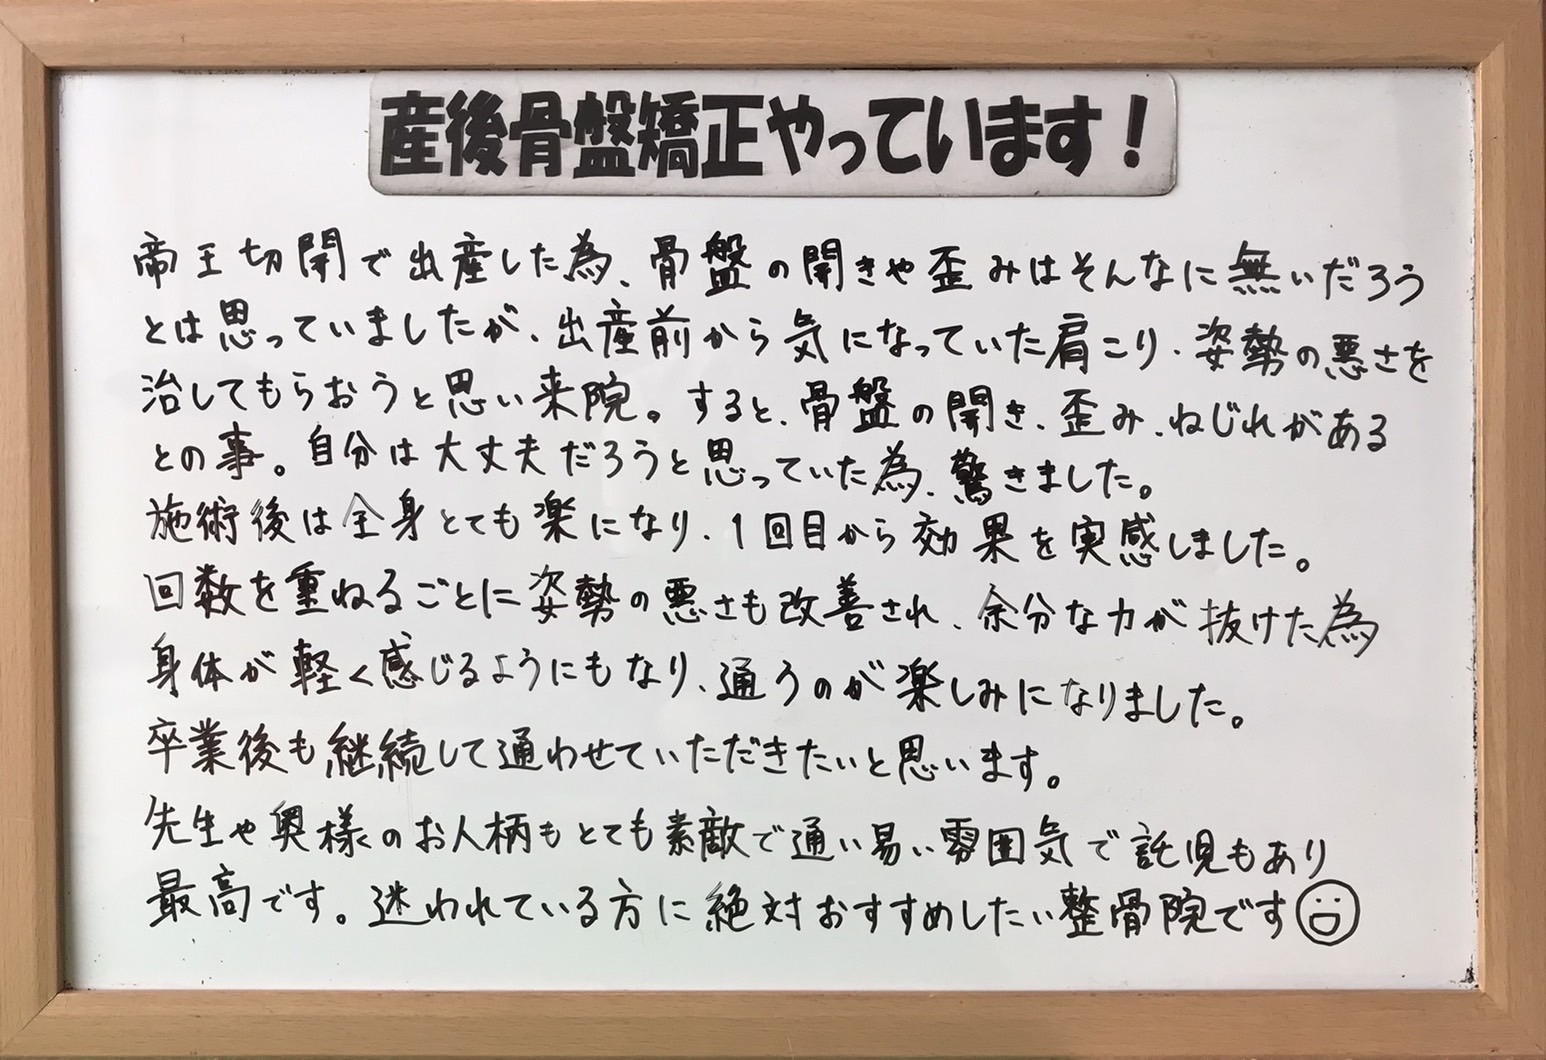 産後骨盤矯正やっています！
帝王切開で出産した為、骨盤の開きや歪みはそんなに無いだろう
とは思っていましたが、出産前から気になっていた肩こり、姿勢の悪さを
治してもらおうと思い来院。すると、骨盤の開き、歪み、ねじれがある
との事。自分は大丈夫だろうと思っていた為、驚きました。
施術後は全身とても楽になり、1回目から効果を実感しました。
回数を重ねるごとに姿勢の悪さも改善され、余分な力が抜けた為
身体が軽く感じるようにもなり、通うのが楽しみになりました。
卒業後も継続して通わせていただきたいと思います。
先生や奥様のお人柄もとても素敵で通い易い雰囲気で託児もあり
最高です。迷われている方に絶対おすすめしたい整骨院です